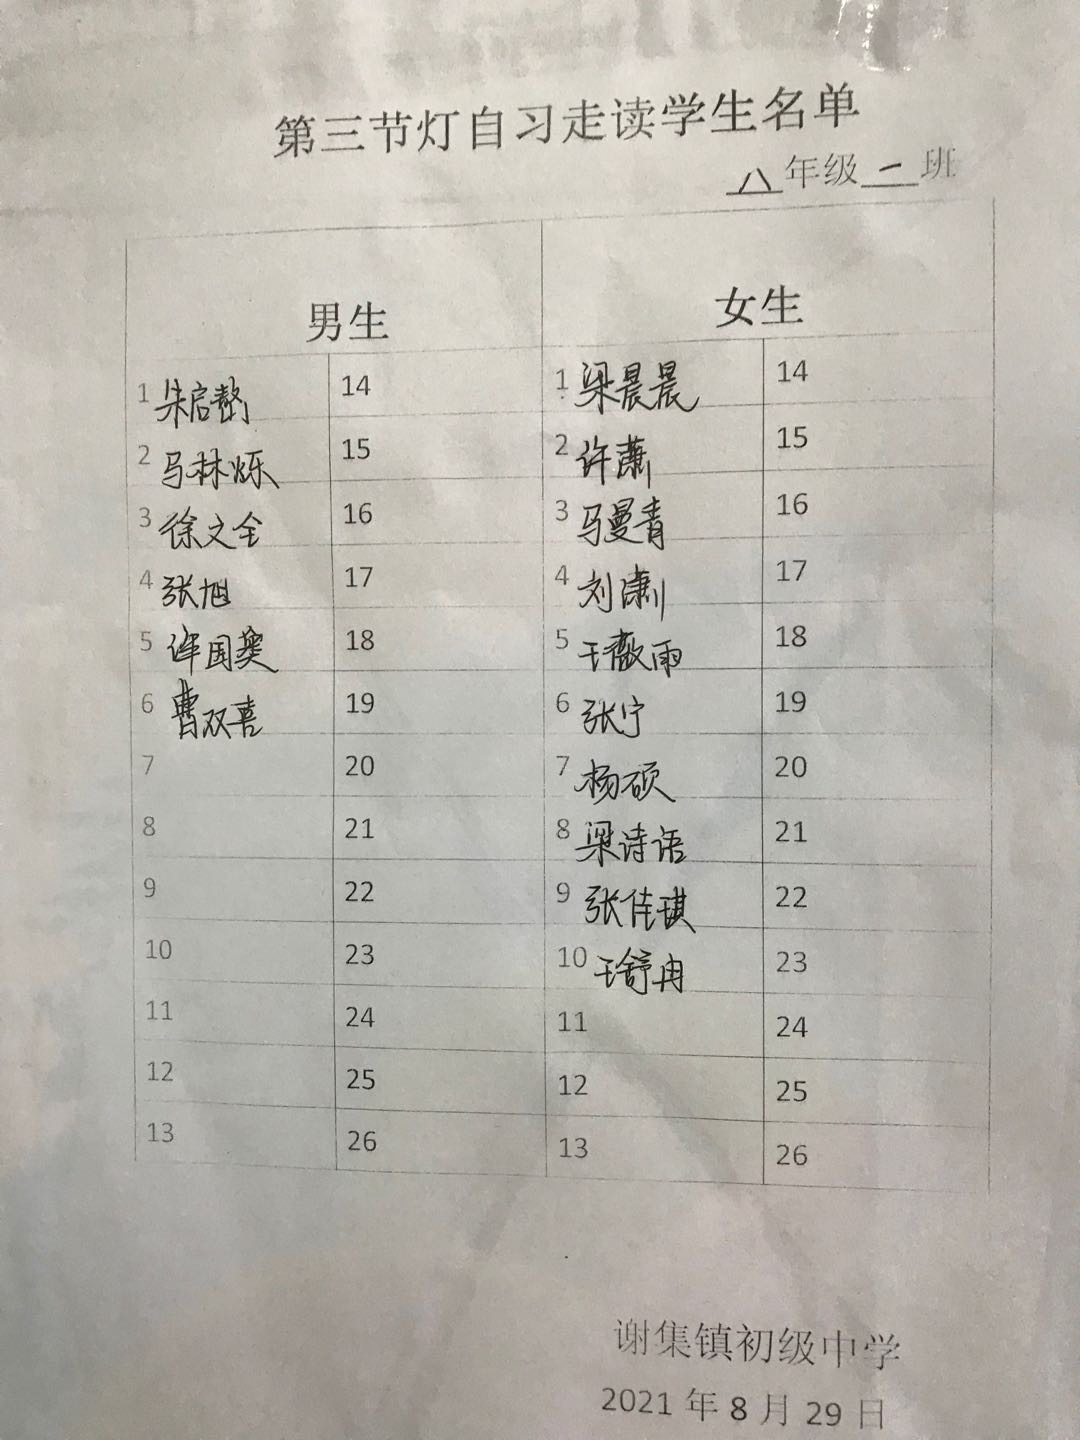 第三节灯自习走读学生名单
八年级一班
男生 女生
1 朱启 14 1 梁晨晨 14
2 马林烁 15 2 许萧 15
3 徐文全 16 3 马曼青 16
4 张旭 17 4 刘潇 17
5 许国奥 18 5 王薇雨 18
6 曹双喜 19 6 张宁 19
7 20 7 杨硕 20
8 21 8 梁诗语 21
9 22 9 张佳琪 22
10 23 10 王舒冉 23
11 24 11 24
12 25 12 25
13 26 13 26
谢集镇初级中学
2021 年 8 月 29 日